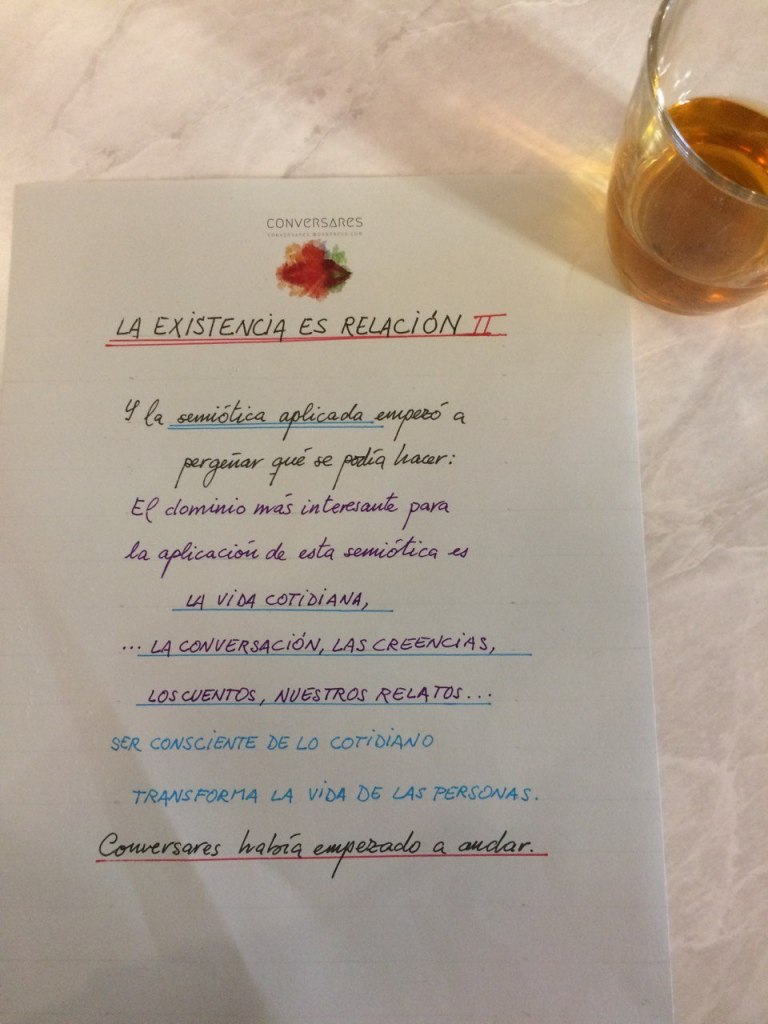 CONVERSARES
CONVERSARES.WORDPRESS.COM
LA EXISTENCIA ES RELACIÓN II
Y la semiótica aplicada empezó a
pergeñar qué se podía hacer:
El dominio más interesante para
la aplicación de esta semiótica es
LA VIDA COTIDIANA,
... LA CONVERSACIÓN, LAS CREENCIAS,
LOS CUENTOS, NUESTROS RELATOS...
SER CONSCIENTE DE LO COTIDIANO
TRANSFORMA LA VIDA DE LAS PERSONAS.
Conversares había empezado a andar.